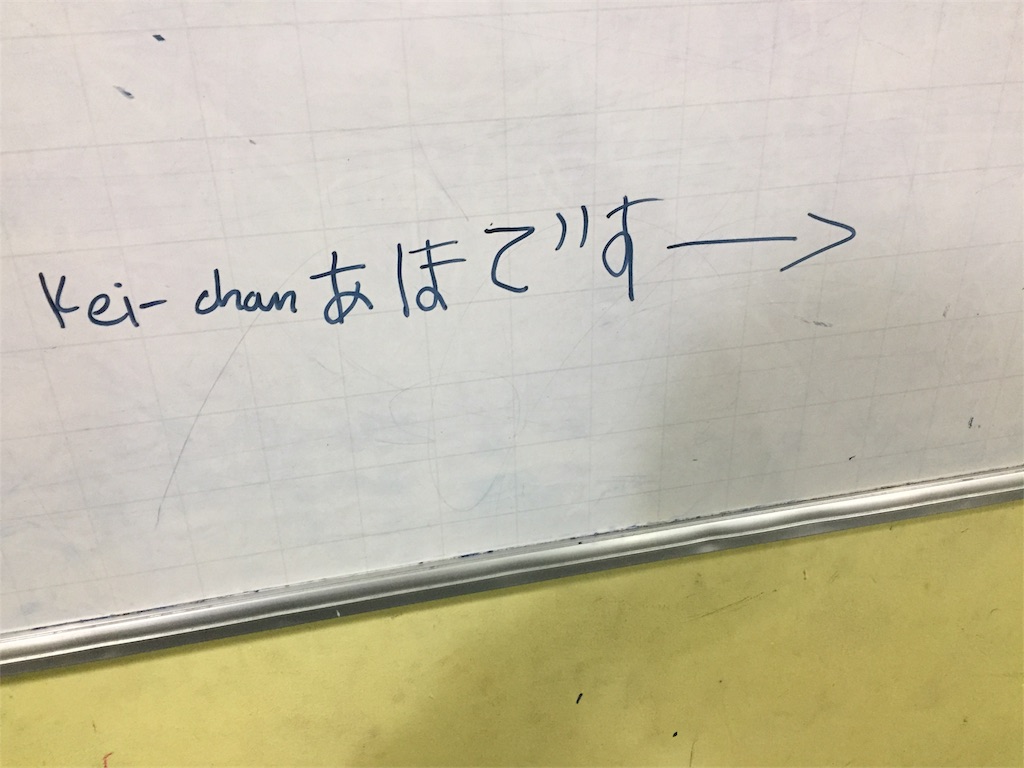 Kei-chan あほです→